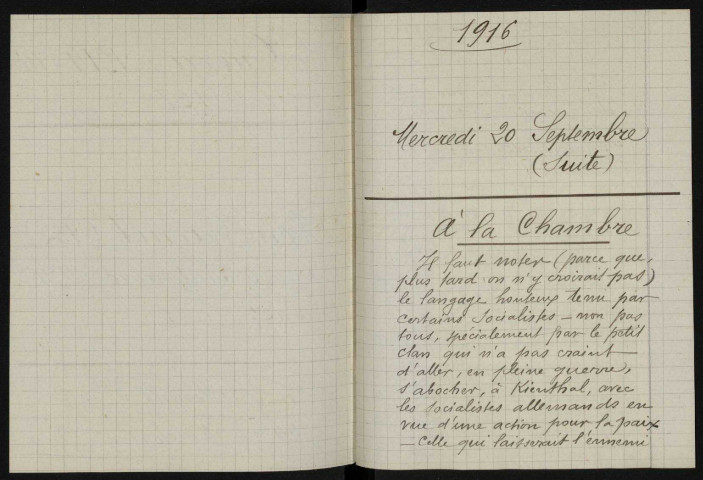 1916
Mercredi 20 Septembre
(Suite)
À la Chambre
Il faut noter (parce que,
plus tard on n'y croirait pas)
le langage honteux tenu par
certains Socialistes — non pas
tous, spécialement par le petit
clan qui n'a pas craint
d'aller, en pleine guerre,
s'abocher, à Kienthal, avec
les socialistes allemands en
vue d'une action pour la paix
— Celle qui laisserait l'ennemi